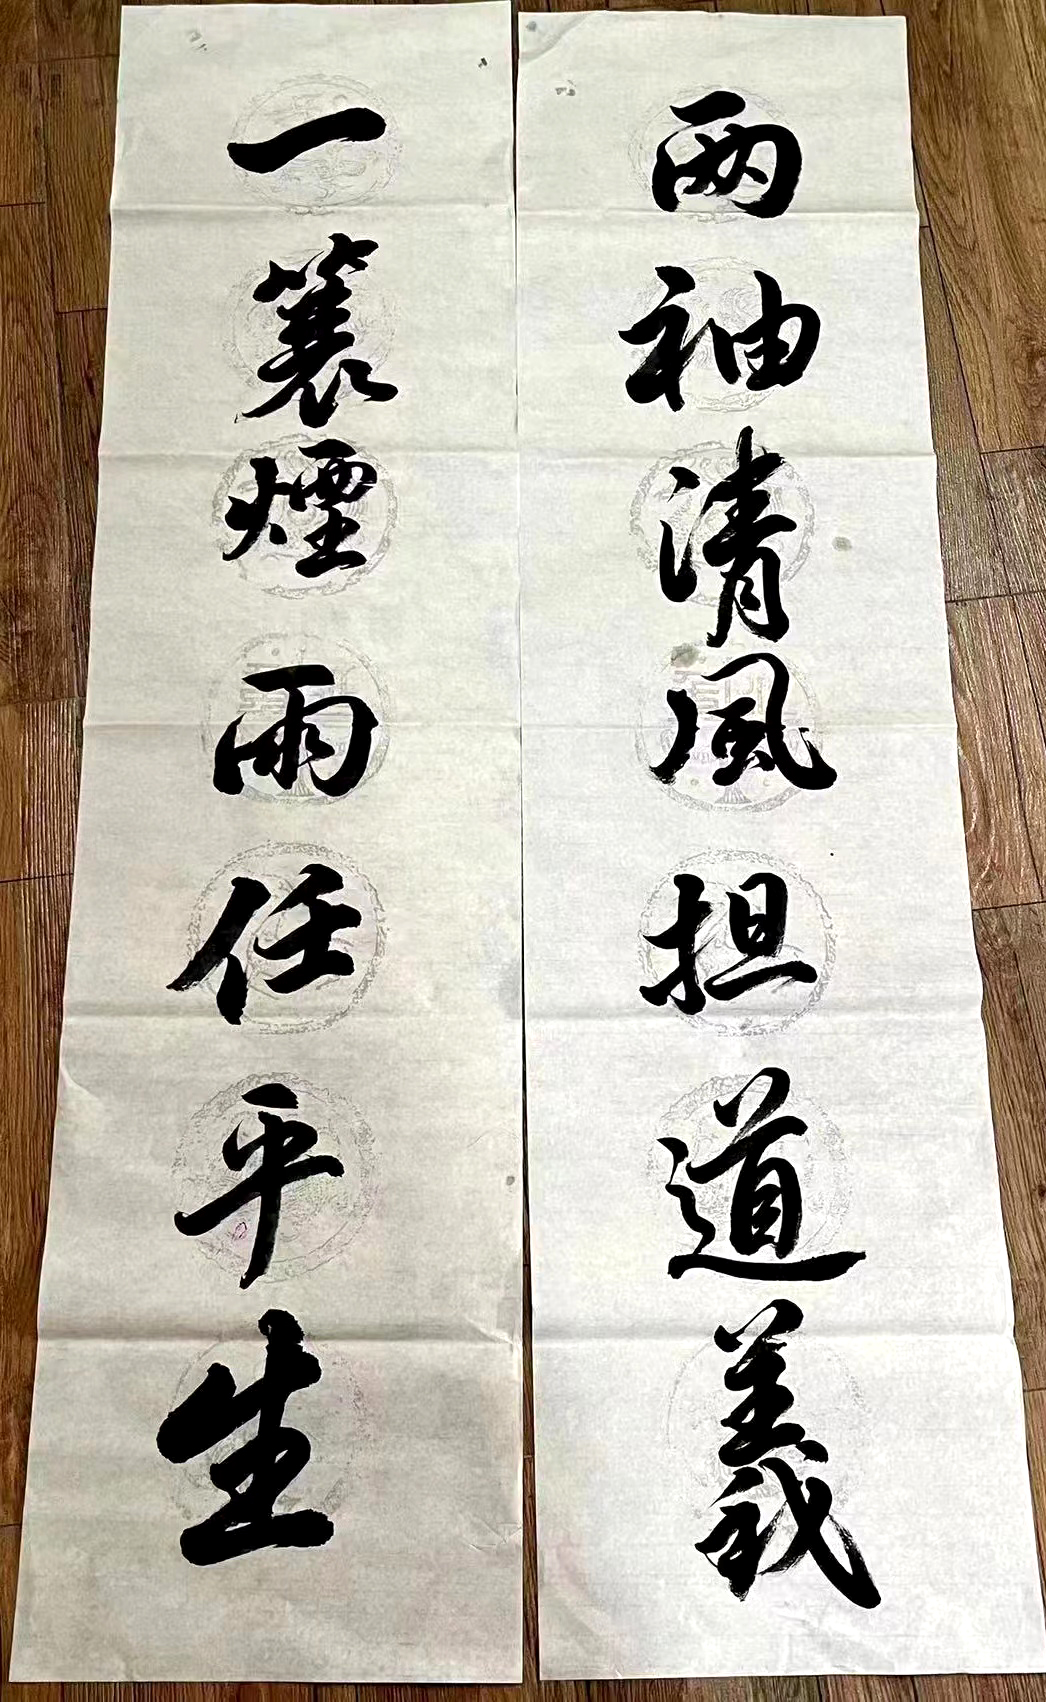 两袖清風担道義
一蓑煙雨任平生